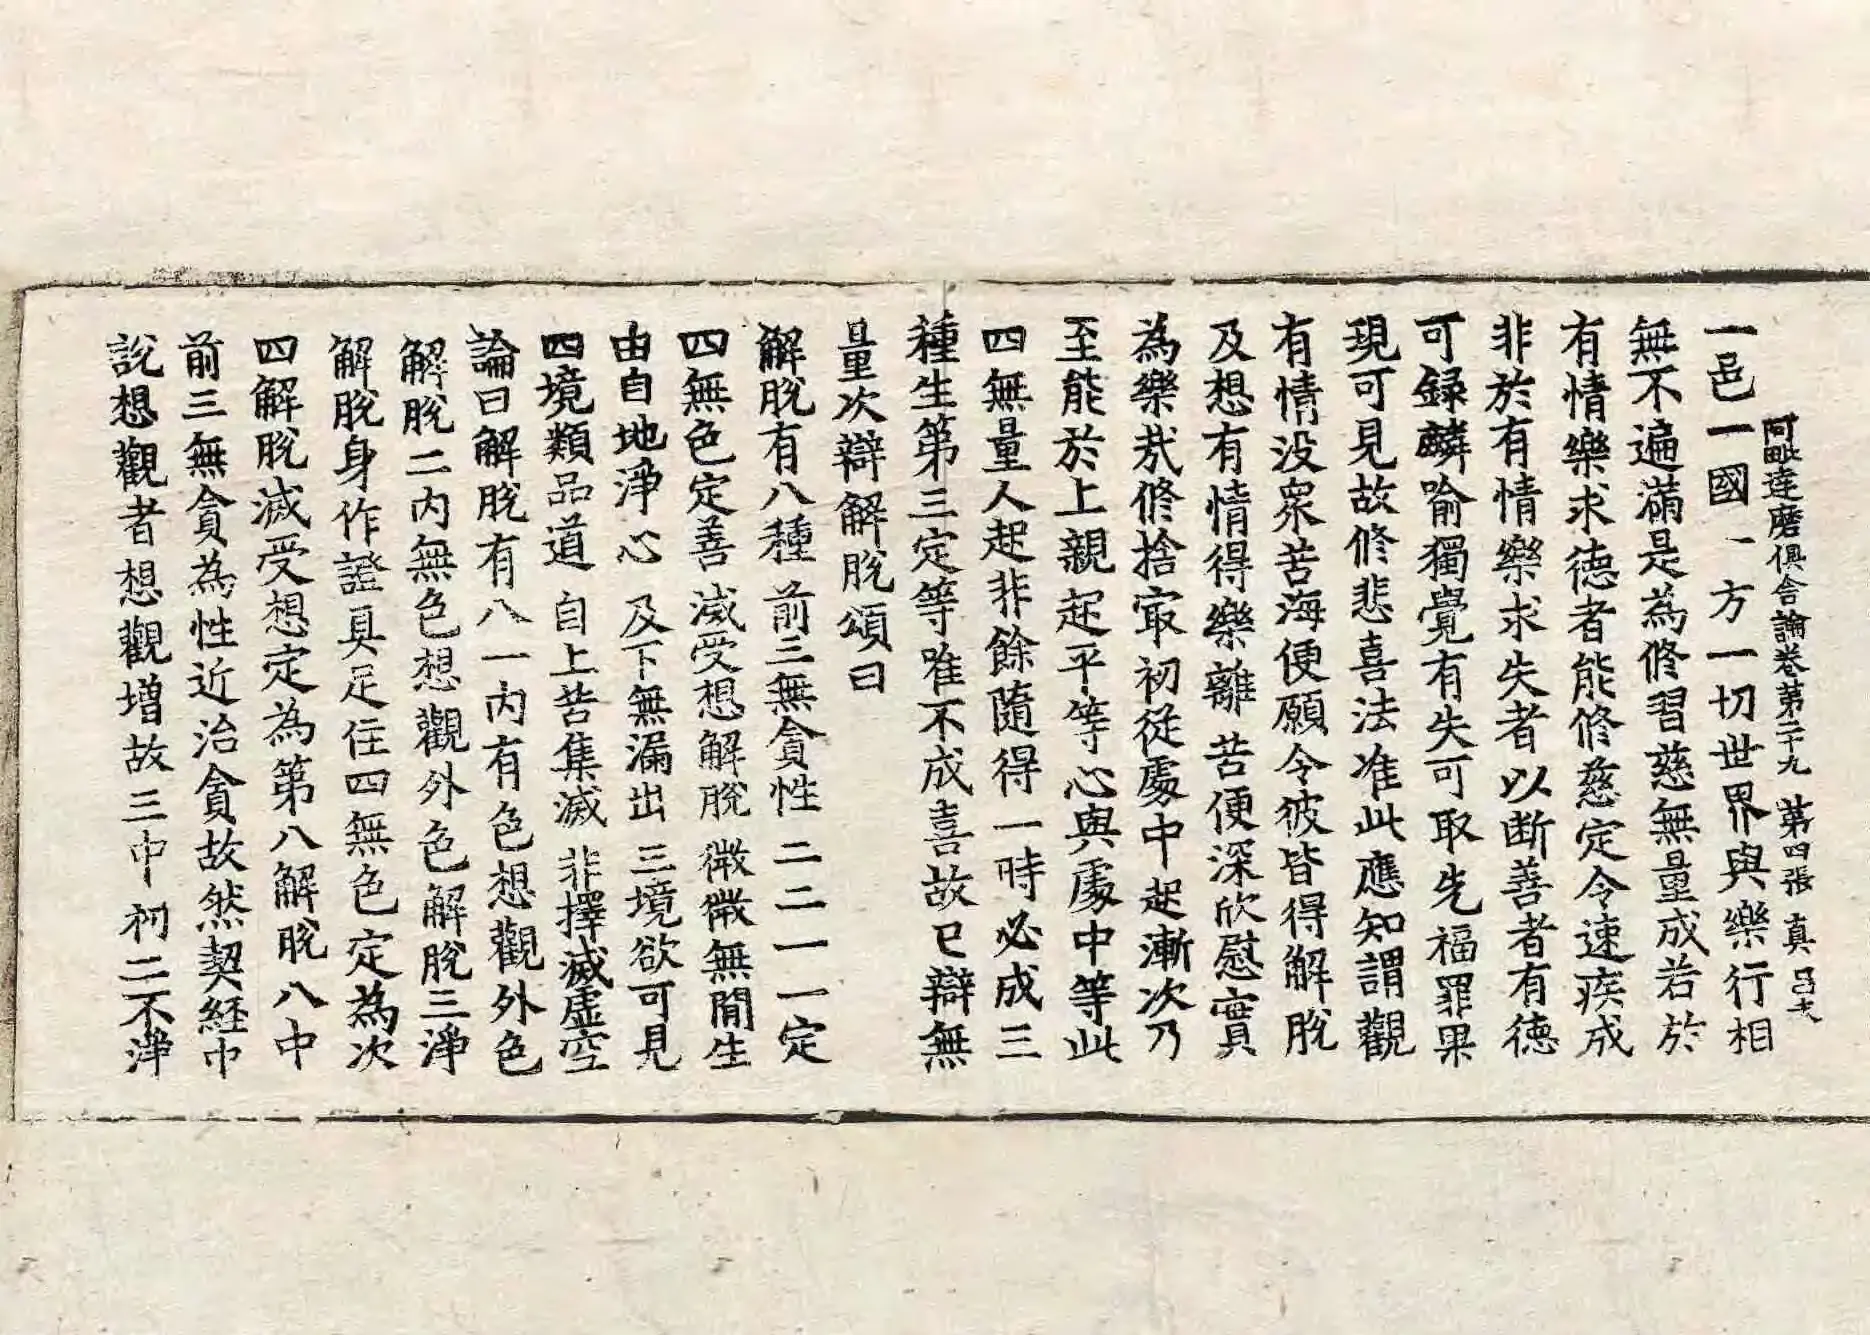 阿毗達磨俱舍論卷第二十九 第四張 真
一邑一國一方一切世界與樂行相
無不遍滿是為修習慈無量成若於
有情樂求德者能修慈定令速疾成
非於有情樂求失者以断善者有德
可録麟喻獨覺有失可取先福罪果
現可見故修悲喜法准此應知謂觀
有情没眾苦海便願令彼皆得解脫
及想有情得樂離苦便深欣慰實
為樂哉修捨冣初從處中起漸次乃
至能於上親起平等心與處中等此
四無量人起非餘隨得一時必成三
種生第三定等唯不成喜故已辯無
量次辯解脫頌曰
解脫有八種 前三無貪性 二二一一定
四無色定善 滅受想解脫 微微無閒生
由自地淨心 及下無漏出 三境欲可見
四境類品道 自上苦集滅 非擇滅虛空
論曰解脫有八一內有色想觀外色
解脫二內無色想觀外色解脫三淨
解脫身作證具足住四無色定為次
四解脫滅受想定為第八解脫八中
前三無貪為性近治貪故然契經中
說想觀者想觀增故三中初二不淨